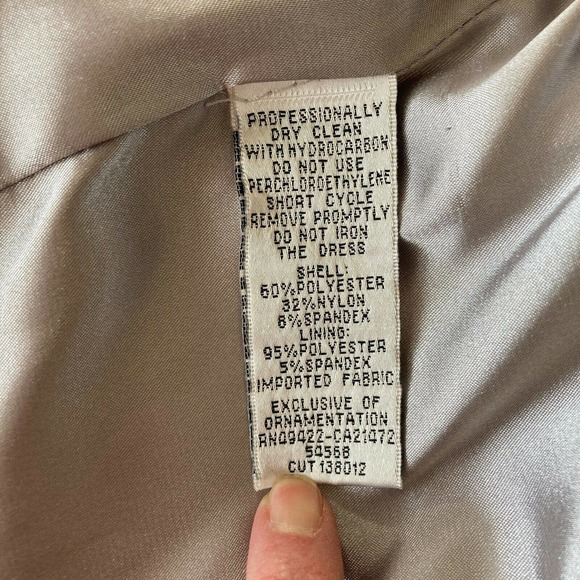 PROFESSIONALLY
DRY CLEAN
WITH HYDROCARBON
DO NOT USE
PERCHLOROETHYLENE
SHORT CYCLE
REMOVE PROMPTLY
DO NOT IRON
THE DRESS
SHELL:
60%POLYESTER
32%NYLON
8%SPANDEX
LINING:
95%POLYESTER
5%SPANDEX
IMPORTED FABRIC
EXCLUSIVE OF
ORNAMENTATION
RN09422-CA21472
54568
CUT 138012